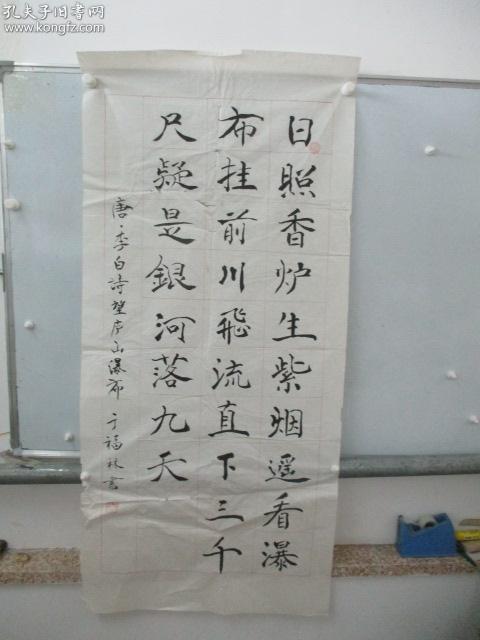 孔夫子旧书网
www.kongfz.com
日照香炉生紫烟遥看瀑
布挂前川飛流直下三千
尺疑是銀河落九天
唐·李白詩望庐山瀑布 于福林書